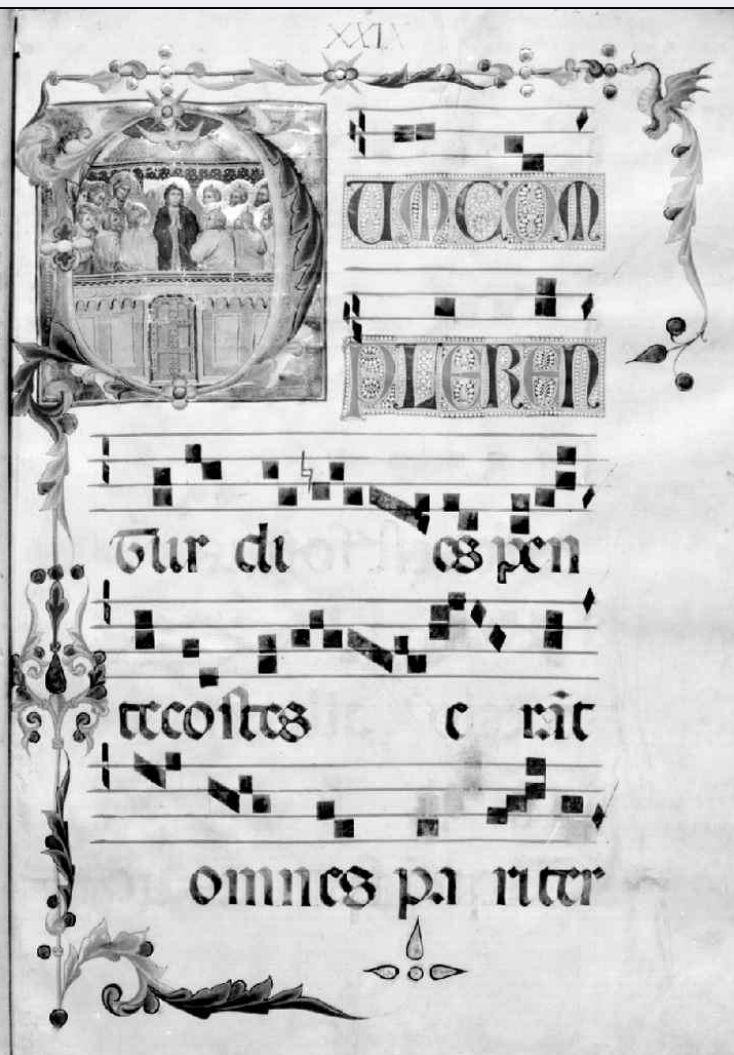 XXIX
DUM COM
PLEREN
tur di es pen
tecostes e rāt
omnes pa riter